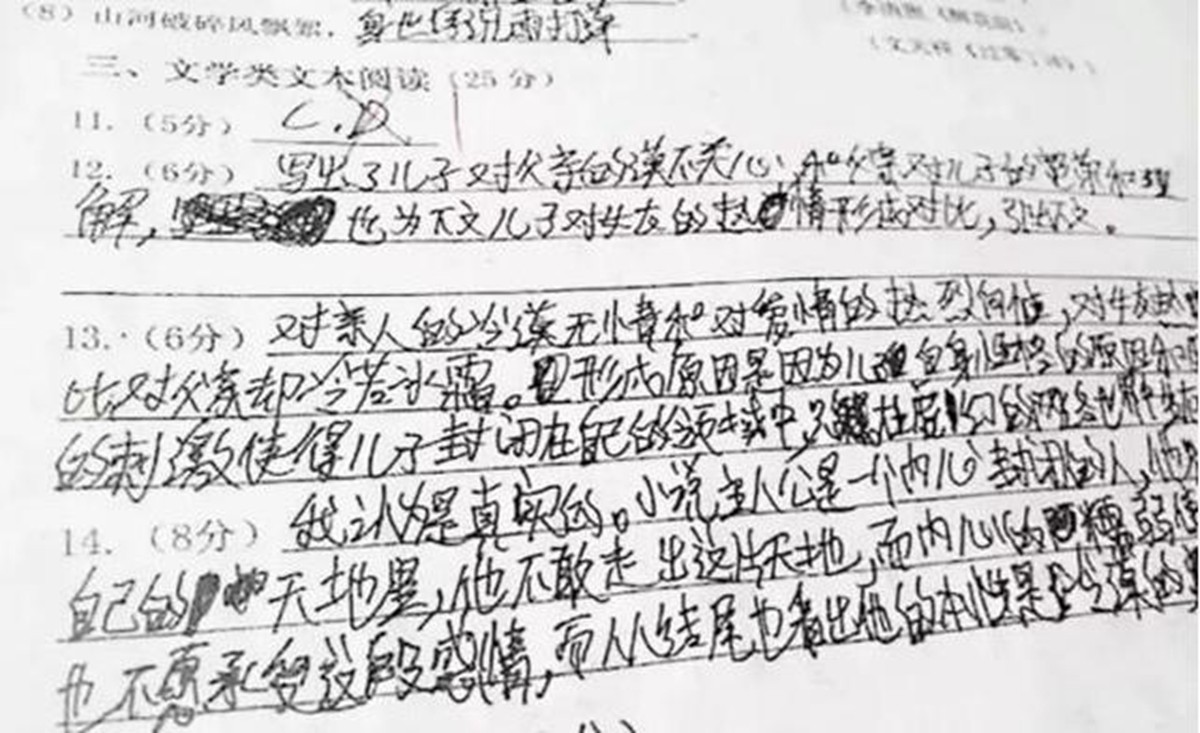 (8) 山河破碎风飘絮，身世浮沉雨打萍
三、文学类文本阅读（25分）
11.（5分） C.D
12.（6分） 写出了儿子对父亲的漠不关心，和父亲对儿子的宽荣和理
解，也为下文儿子对女友的热情形成对比，引出下文。
13.（6分） 对亲人的冷漠无情和对爱情的热烈向往，对女友热
比对父亲却冷若冰霜。形成原因是因为儿自身性格的原因和
的刺激使得儿子封闭在自己的领域中，只在虚幻的网络世界
14.（8分） 我认为是真实的。小说主人公是一个内心封闭的人，他
自己的天地里，他不敢走出这片天地，而内心的懦弱使
他不愿承受这段感情，而从结尾也看出他的本性是冷漠的